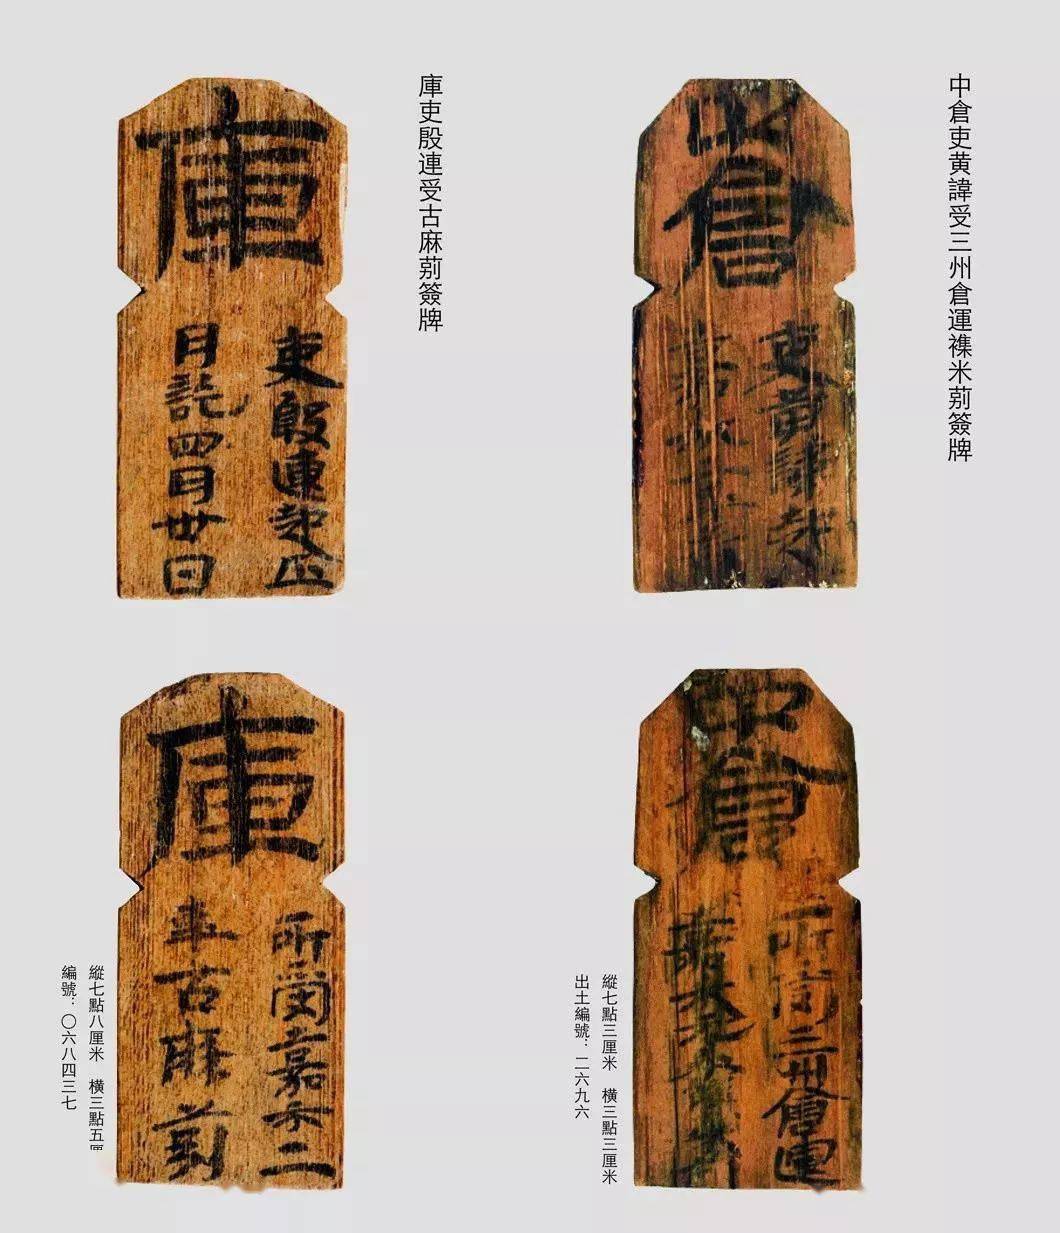 中倉吏黄諱受三州倉運襍米莂簽牌
中倉
吏黄諱起
中倉
所受三州倉運
縱七點三厘米 橫三點三厘米
出土編號：二六九六
庫吏殷連受古麻莂簽牌
庫
吏殷連起正
月訖四月卅日
庫
所受嘉禾二
年古麻莂
縱七點八厘米 橫三點五厘
編號：〇六八四三七